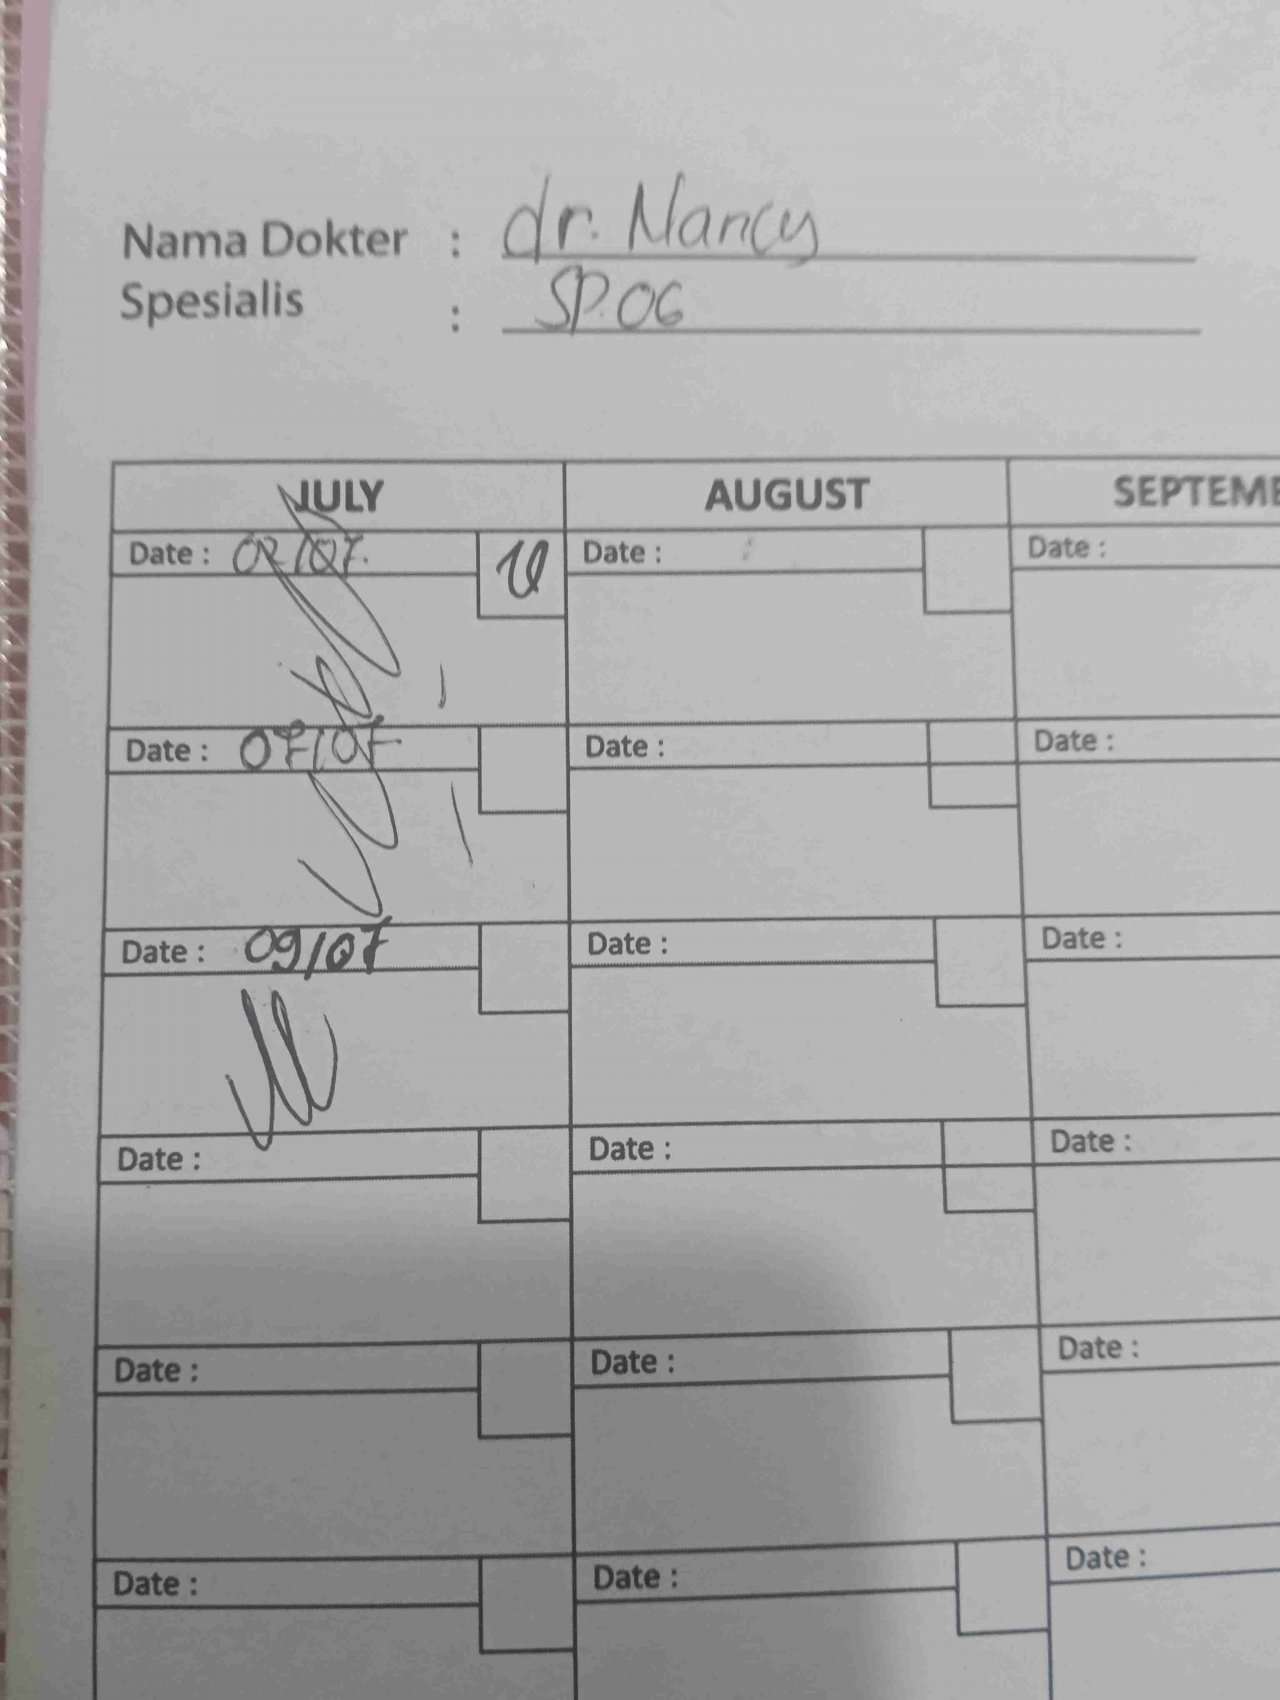 Nama Dokter : dr. Nancy
Spesialis : SP.OG
JULY AUGUST SEPTEME
Date : 02/07. Date : Date :
Date : 07/07 Date : Date :
Date : 09/07 Date : Date :
Date : Date : Date :
Date : Date : Date :
Date : Date : Date :